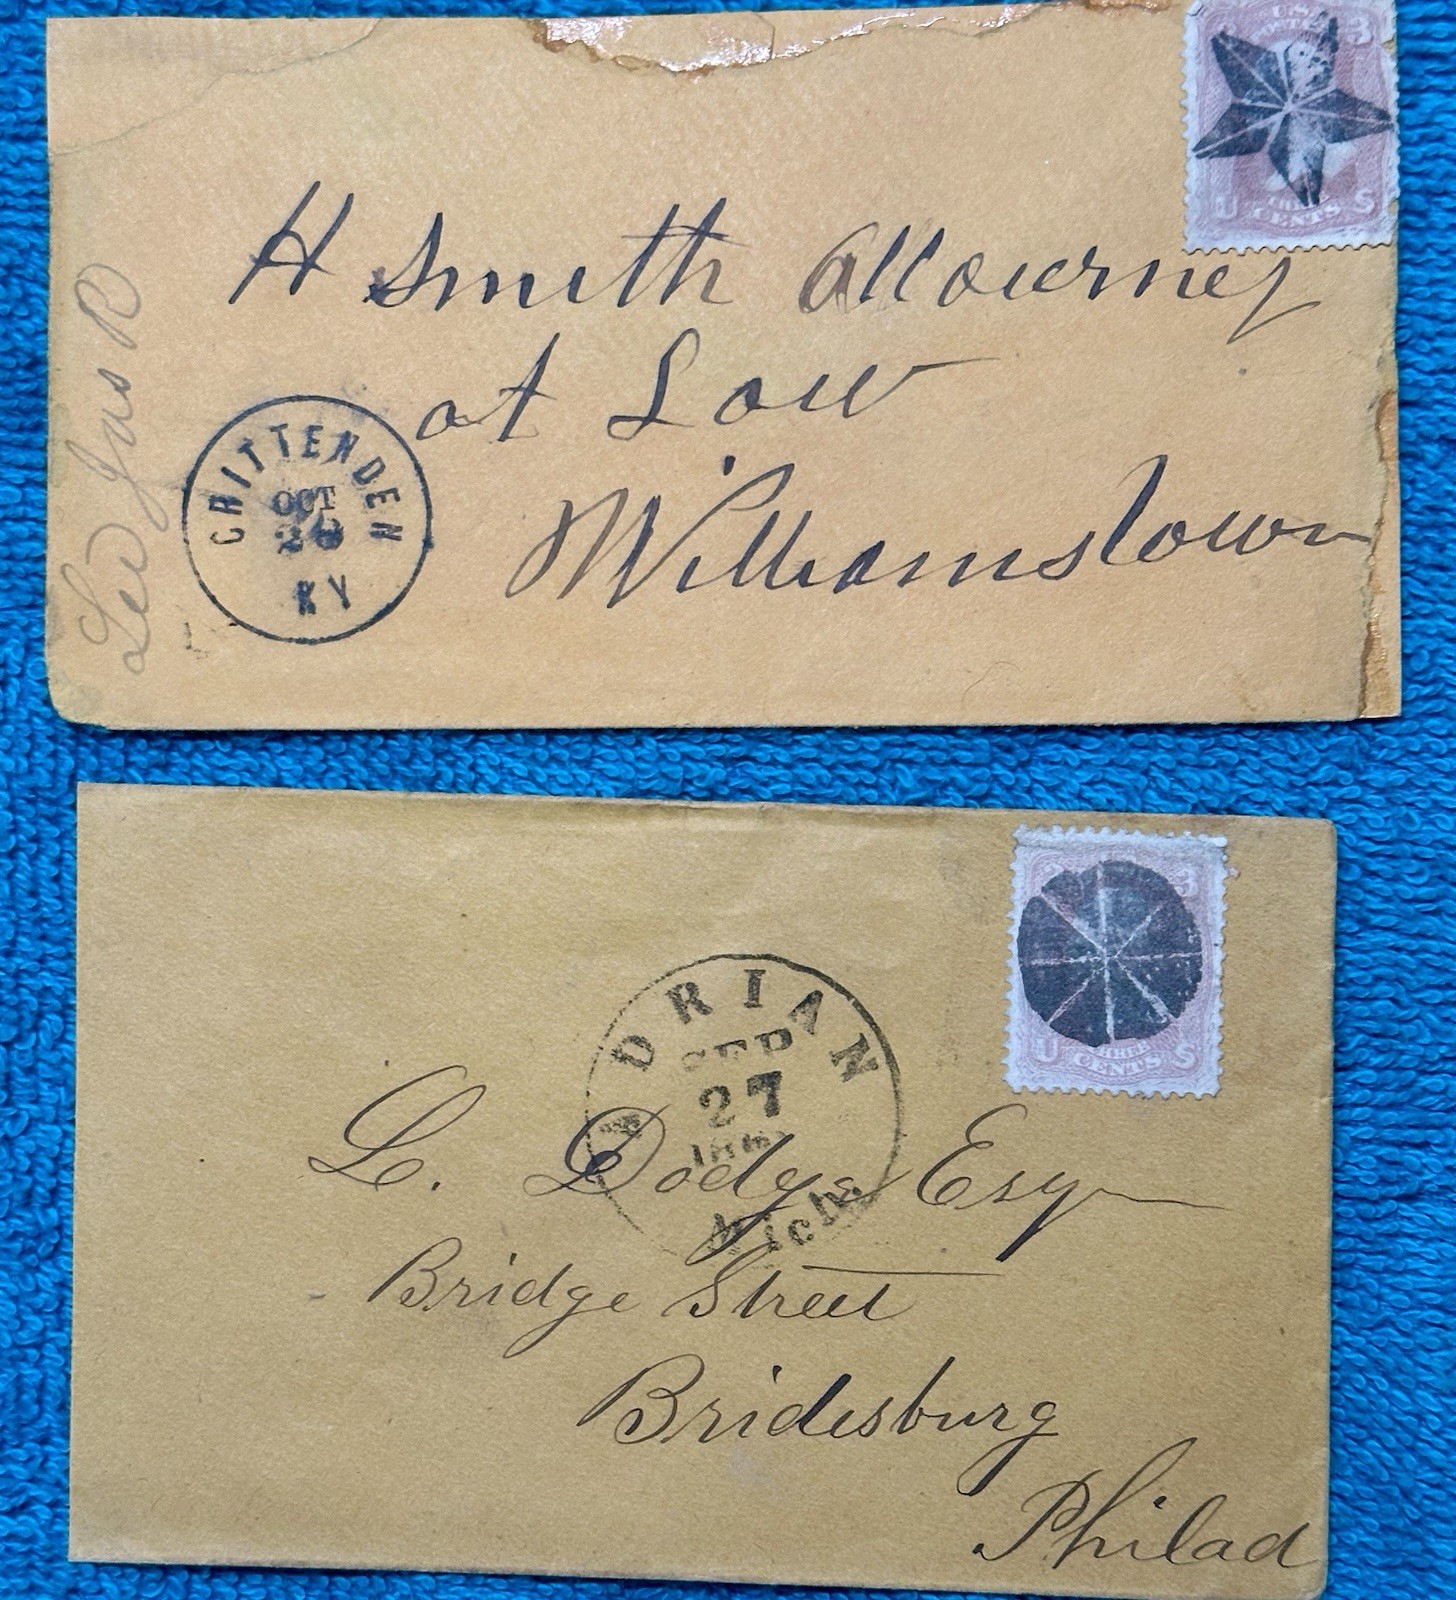 U.S.
3
U S
CENTS
H Smith Attourney
at Law
Williamstown
CRITTENDEN
OCT
KY
Jas R
3
U S
THREE
CENTS
ADRIAN
SEP
27
Mich.
L. Dodge Esq
Bridge Street
Bridesburg
Philad